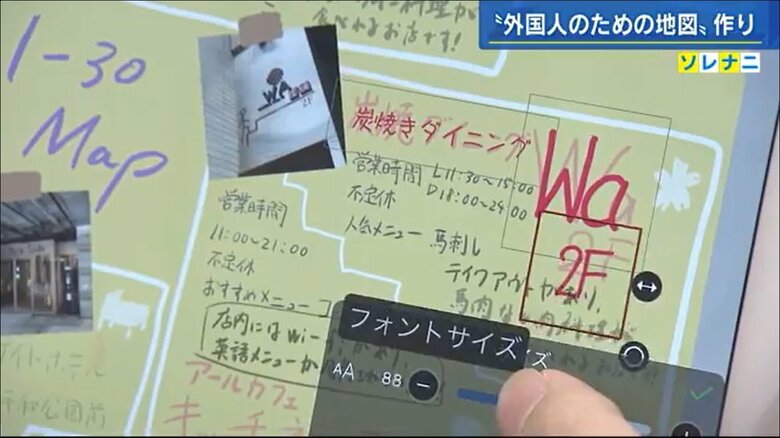 "外国人のための地図"作り
ソレナニ
食べれるお店です!
1-30
Map
Wa
2F
炭焼きダイニング
Wa
2F
営業時間 L11:30~15:00
D18:00~24:00
不定休
人気メニュー 馬刺し
テイクアウトがあり、
営業時間
11:00~21:00
不定休
おすすめメニュー
店内にはWi-
英語メニューが
アールカフェ
キチ
イトホテル
平和公園前
フォントサイズ
AA 88